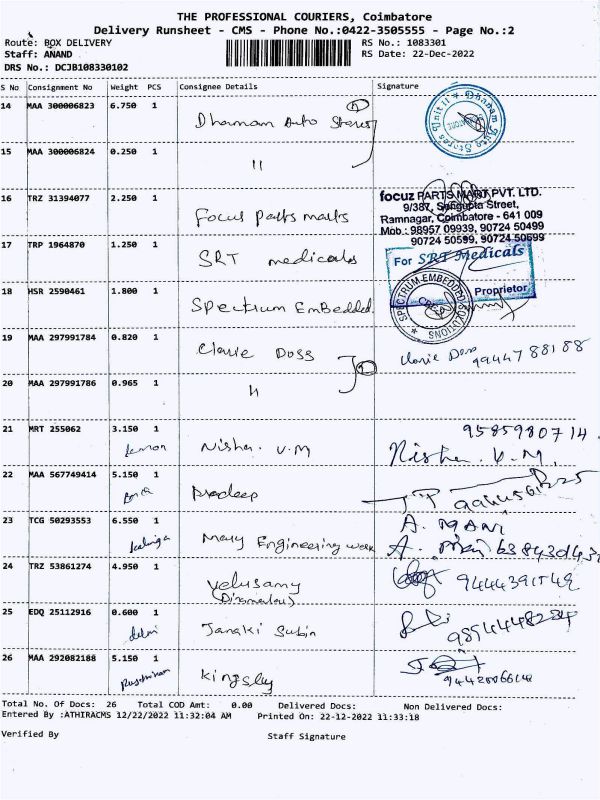 THE PROFESSIONAL COURIERS, Coimbatore
Delivery Runsheet - CMS - Phone No.:0422-3505555 - Page No.:2
Route: BOX DELIVERY RS No.: 1083301
Staff: ANAND RS Date: 22-Dec-2022
DRS No.: DCJB108330102
S No Consignment No Weight PCS Consignee Details Signature
14 MAA 300006823 6.750 1
Auto Stores
15 MAA 300006824 0.250 1
"
16 TRZ 31394077 2.250 1
Focus Parts marts
focuz PARTS MART PVT. LTD.
9/387, Sengupta Street,
Ramnagar, Coimbatore - 641 009
Mob.: 98957 09939, 90724 50499
90724 50599, 90724 50699
17 TRP 1964870 1.250 1
SRT medicals
For SRT Medicals
Proprietor
18 HSR 2590461 1.800 1
Spectrum Embedded
SPECTRUM EMBEDDED SOLUTIONS
19 MAA 297991784 0.820 1
Doss
20 MAA 297991786 0.965 1
"
21 MRT 255062 3.150 1
lemon Nisha. V.M
9585980714
Nisha. V.M.
22 MAA 567749414 5.150 1
Pradeep
23 TCG 50293553 6.550 1
Mary Engineering work
A. MANI
24 TRZ 53861274 4.950 1
Velusamy
25 EDQ 25112916 0.600 1
delhi Janaki Subin
26 MAA 292082188 5.150 1
Kingsley
Total No. Of Docs: 26 Total COD Amt: 0.00 Delivered Docs: Non Delivered Docs:
Entered By :ATHIRACMS 12/22/2022 11:32:04 AM Printed On: 22-12-2022 11:33:18
Verified By Staff Signature